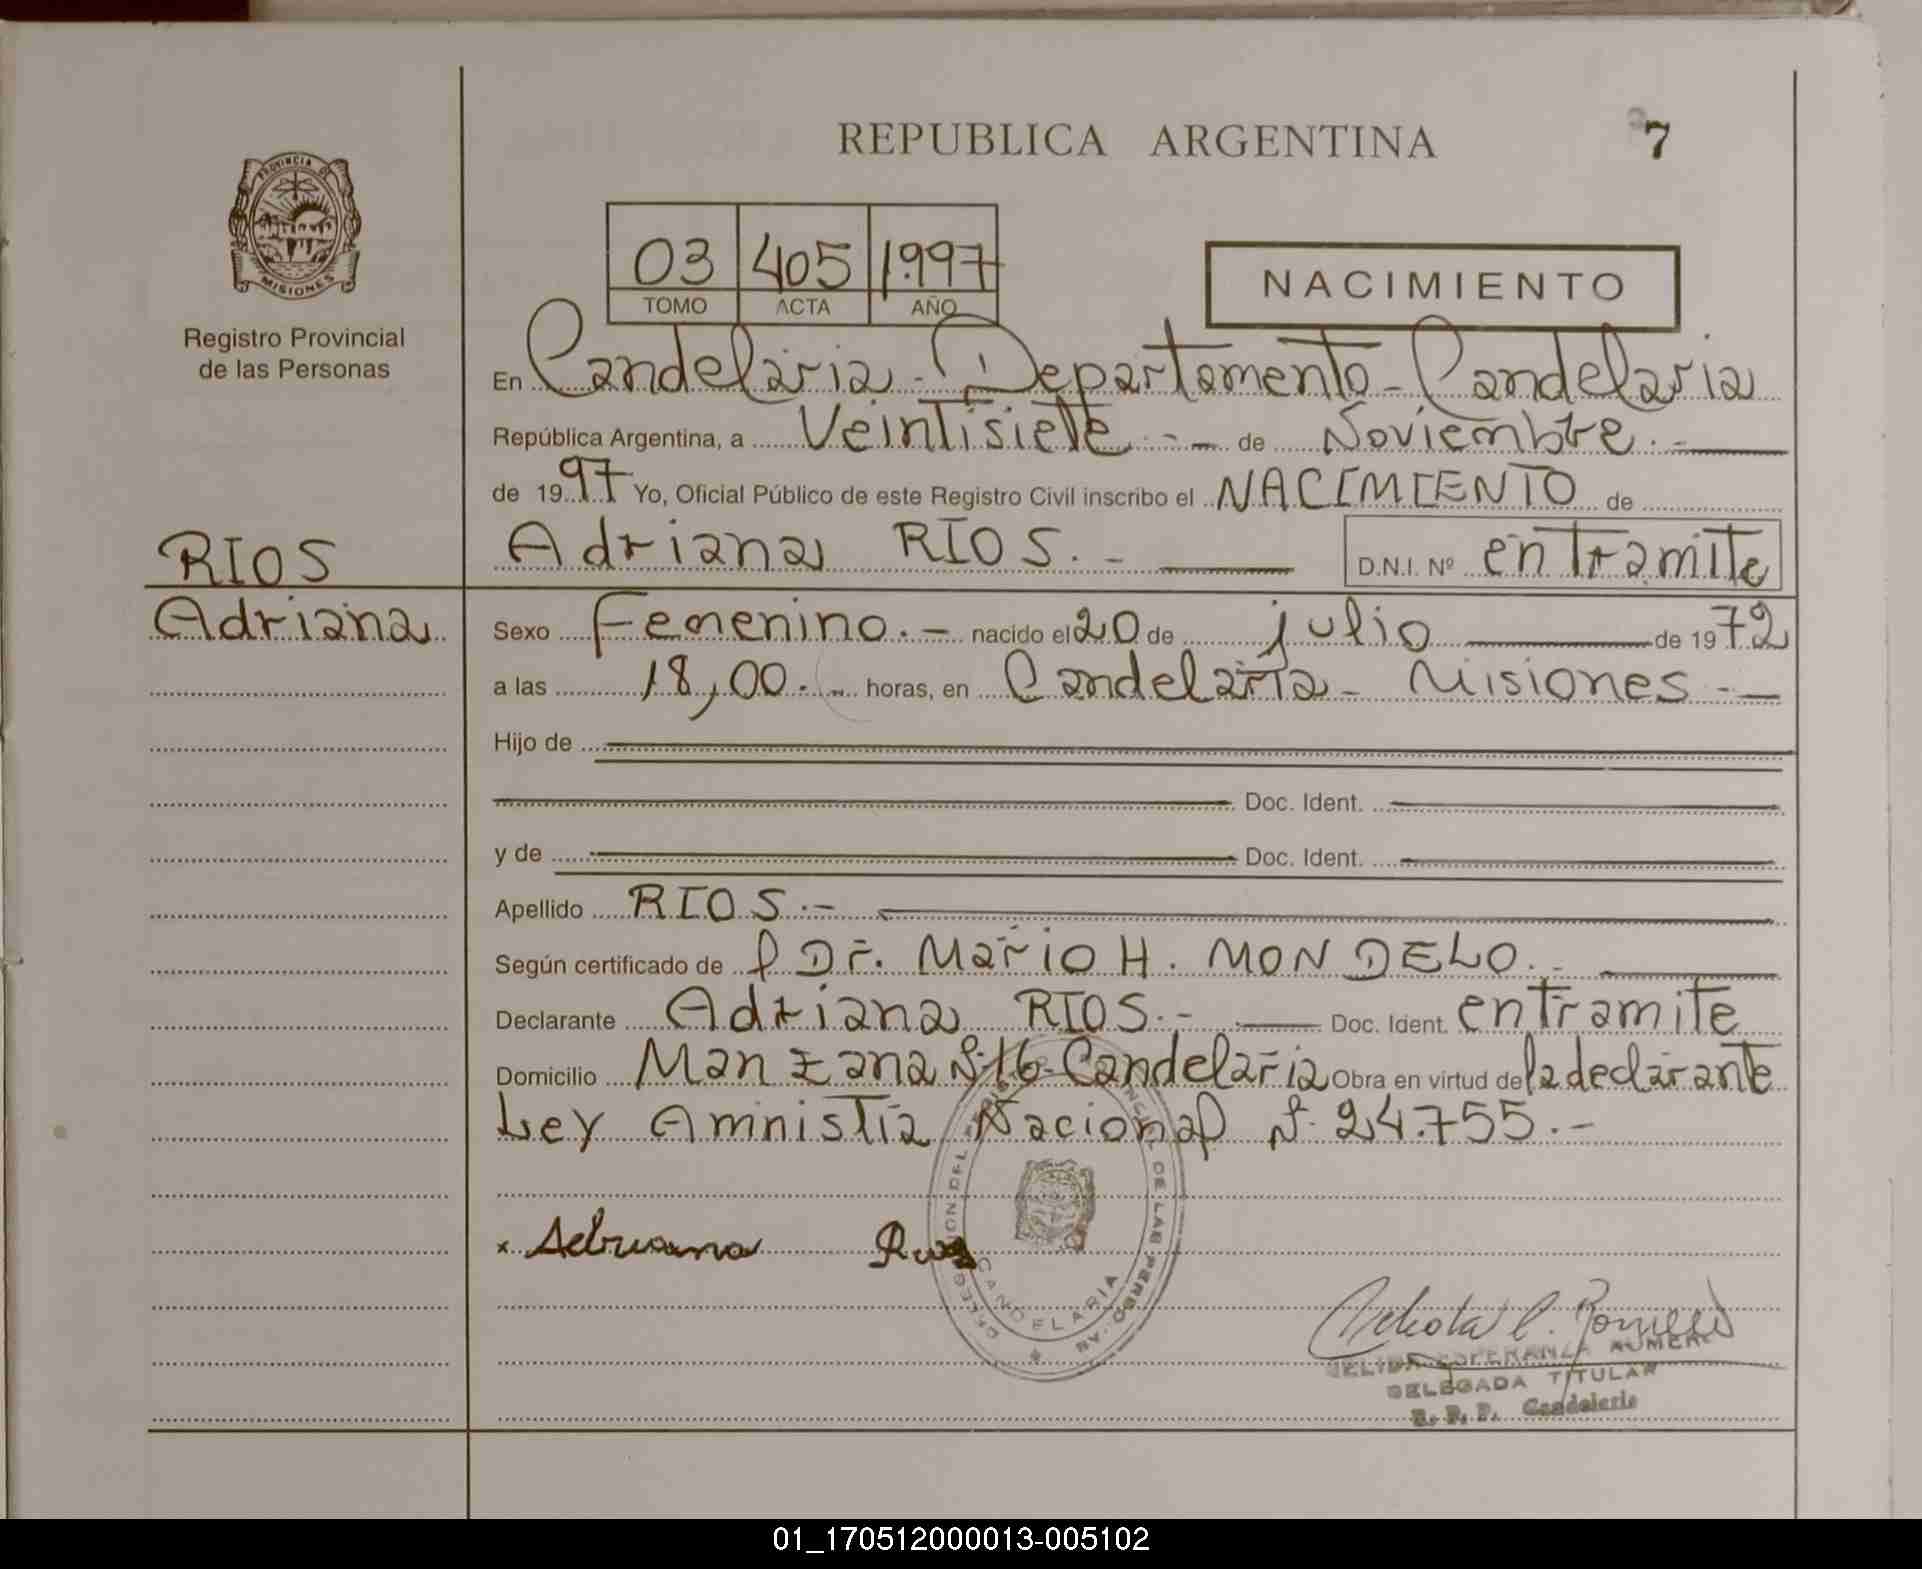 REPUBLICA ARGENTINA
7
PROVINCIA DE
MISIONES
Registro Provincial
de las Personas
03 405 1997
TOMO ACTA AÑO
NACIMIENTO
En Candelaria - Departamento - Candelaria
República Argentina, a Veintisiete .- de Noviembre .-
de 1997 Yo, Oficial Público de este Registro Civil inscribo el NACIMIENTO de
RIOS
Adriana RIOS. -
D.N.I. Nº en Tramite
Adriana
Sexo Femenino. - nacido el 20 de julio de 1972
a las 18,00. - horas, en Candelaria - Misiones - -
Hijo de
Doc. Ident.
y de Doc. Ident.
Apellido RIOS .-
Según certificado de Dr. Mario H. MONDELO. -
Declarante Adriana RIOS. - Doc. Ident. en Tramite
Domicilio Manzana Nº 16 - Candelaria Obra en virtud de la declarante
Ley Amnistia Nacional Nº 24.755. -
x Adriana Rios
CANDELARIA
DE LAS PERSONAS
ESPERANZA
DELEGADA TITULAR
R. P. P. Candelaria
01_170512000013-005102